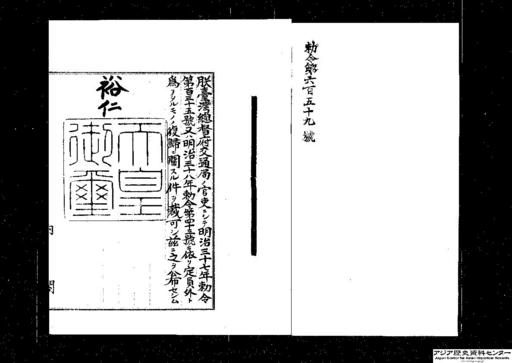 勅令第六百五十九號
朕臺灣總督府交通局ノ官吏ニシテ明治三十七年勅令
第百三十五號又ハ明治三十八年勅令第四十三號ニ依リ定員外ト
爲リタルモノノ復歸ニ關スル件ヲ裁可シ茲ニ之ヲ公布セシム
裕仁
天皇
御璽
内 閣
アジア歴史資料センター
Japan Center for Asian Historical Records